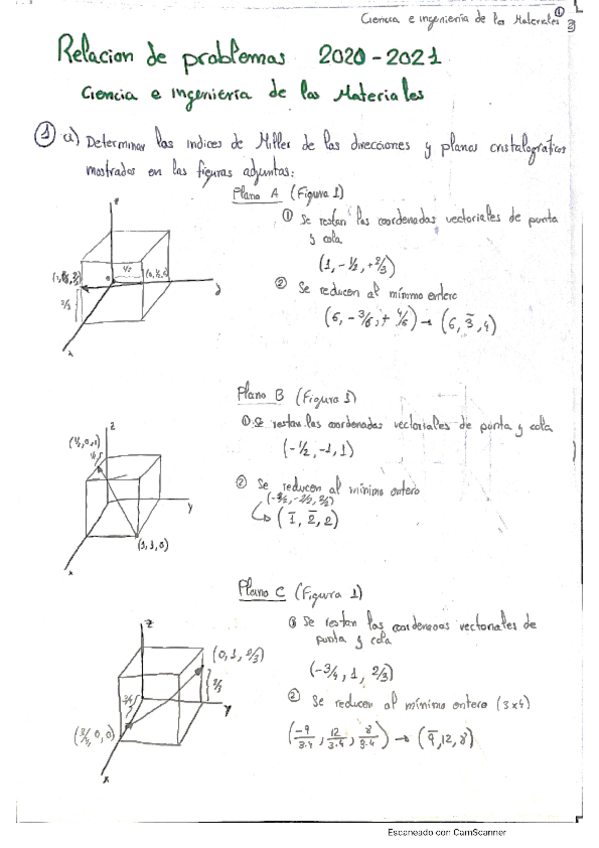 Ciencia e ingenieria de los Materiales ①
Relacion de problemas 2020-2021
Ciencia e ingenieria de los Materiales
① a) Determinar los indices de Miller de las direcciones y planos cristalograficos
mostrados en las figuras adjuntas:
Plano A (Figura 1)
① Se restan las coordenadas vectoriales de punta
y cola
(1, -½, +2/3)
② Se reducen al mínimo entero
(6, -3/6, + 4/6) → (6, 3̅, 4)
1/2
(0,½,0)
2/3
y
x
Plano B (Figura 1)
①. Se restan las coordenadas vectoriales de punta y cola
(-½, -1, 1)
② Se reducen al mínimo entero
(-2/2, -2/2, 2/2)
↳ (1̅, 2̅, 2)
z
(½,0,1)
y
(1,1,0)
x
Plano C (Figura 1)
① Se restan las coordenadas vectoriales de
punta y cola
(-3/4, 1, 2/3)
② Se reducen al mínimo entero (3x4)
(-9/3.4, 12/3.4, 8/3.4) → (9̅, 12, 8)
z
(0, 1, 2/3)
2/3
3/4
y
(3/4, 0, 0)
x
Escaneado con CamScanner